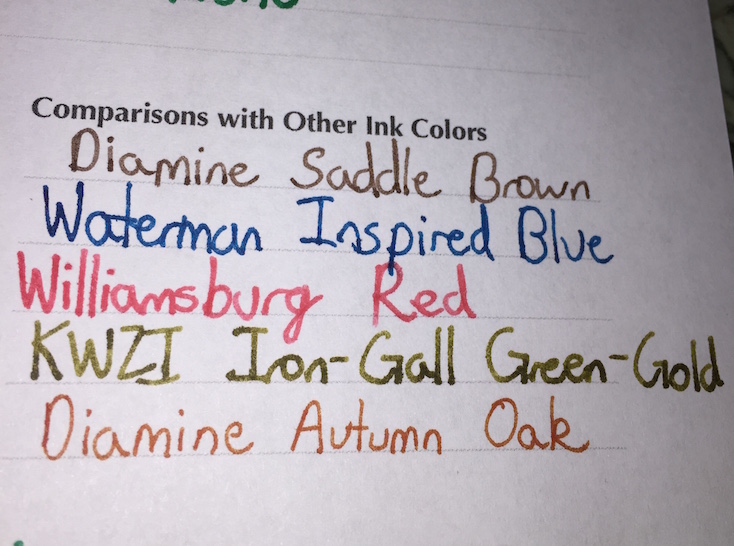 Comparisons with Other Ink Colors
Diamine Saddle Brown
Waterman Inspired Blue
Williamsburg Red
KWZI Iron-Gall Green-Gold
Diamine Autumn Oak